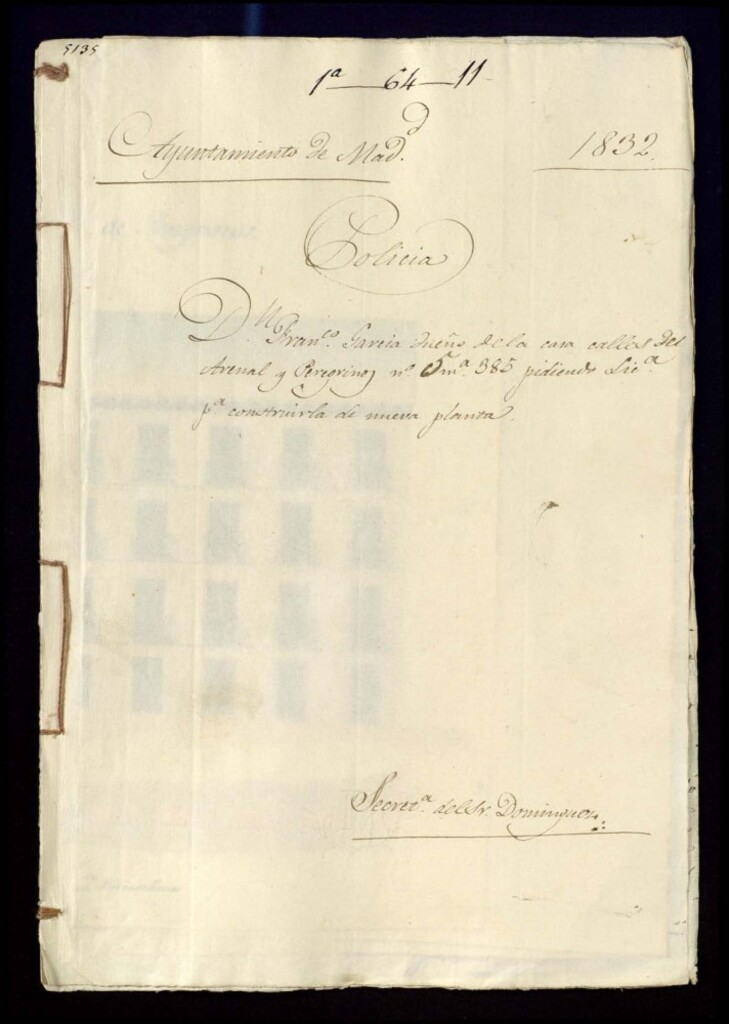 5135
1ª — 64 — 11
Ayuntamiento de Madd.
1832.
Policia
Dn. Franco. Garcia dueño de la casa calles del
Arenal y Peregrinos nº. 5 mª. 385 pidiendo Lica.
pª construirla de nueva planta.
Secretª. del Sr. Dominguez